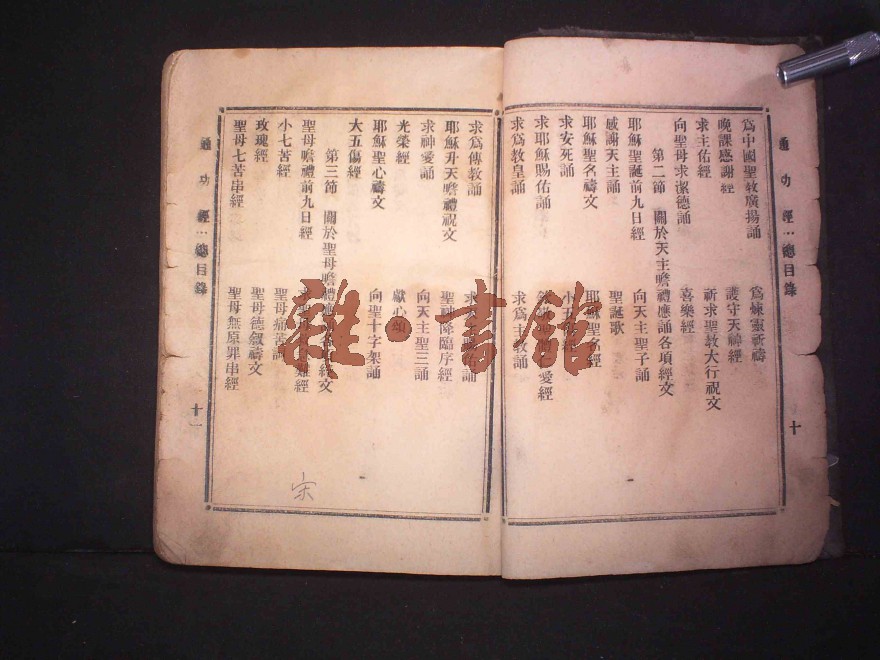 通功經⋯總目錄
十
為中國聖教廣揚誦
為煉靈祈禱
晚課感謝經
護守天神經
求主佑經
祈求聖教大行祝文
向聖母求潔德誦
喜樂經
第二節 關於天主瞻禮應誦各項經文
耶穌聖誕前九日經
向天主聖子誦
感謝天主誦
聖誕歌
求安死誦
耶穌聖名經
耶穌聖名禱文
小五傷經
求耶穌賜佑誦
愛經
求爲教皇誦
求爲主教誦
求爲傳教誦
求天
佑誦
耶穌升天瞻禮祝文
聖神降臨序經
求神愛誦
向天主聖三誦
光榮經
獻心頌
耶穌聖心禱文
向聖十字架誦
大五傷經
第三節 關於聖母瞻禮應誦各項經文
聖母瞻禮前九日經
經
小七苦經
聖母痛苦誦
玫瑰經
聖母德敘禱文
聖母七苦串經
聖母無原罪串經
通功經⋯總目錄
十一
宋
雜·書館